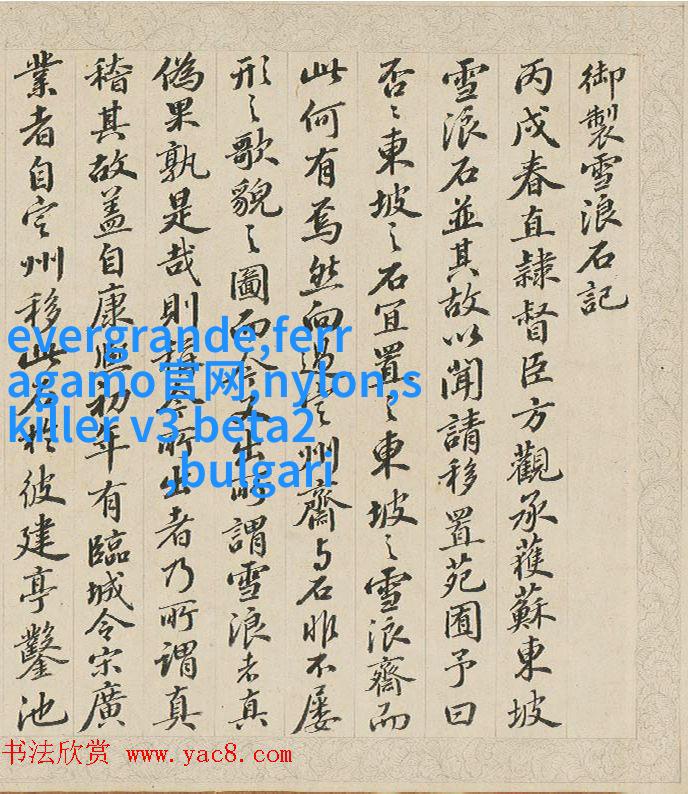 御製雪浪石記
丙戌春直隸督臣方觀承獲蘇東坡
雪浪石並其故以聞請移置苑囿予曰
否〻東坡之石宜置之東坡之雪浪齋而
此何有焉然向過定州齋与石非不屢
形之歌貌之圖而今又出所謂雪浪者真
偽果孰是哉則謂今所出者乃所謂真
稽其故盖自康熙初年有臨城令宋廣
業者自定州移此石於彼建亭鑿池
evergrande,ferr
agamo官网,nylon,s
killer v3 beta2
,bulgari
书法欣赏 www.yac8.com